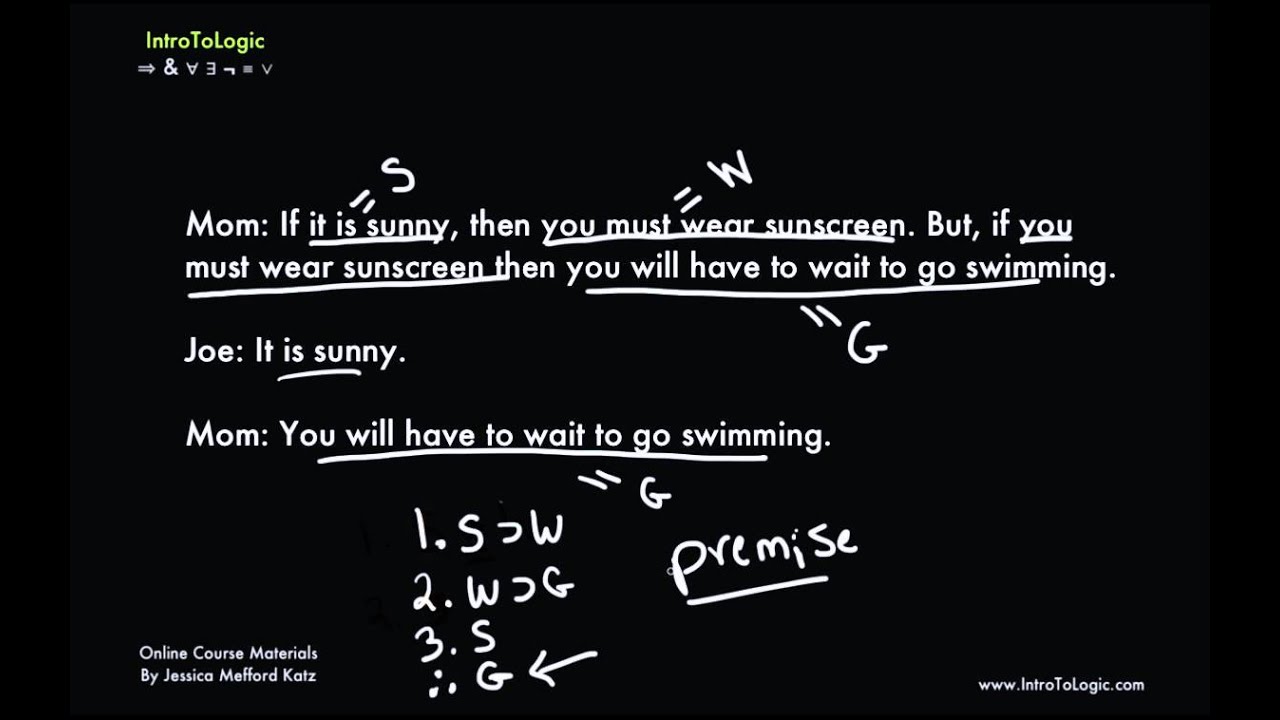 IntroToLogic
⇒ & ∀ ∃ ¬ ≡ ∨
S
W
Mom: If it is sunny, then you must wear sunscreen. But, if you
must wear sunscreen then you will have to wait to go swimming.
G
Joe: It is sunny.
Mom: You will have to wait to go swimming.
G
1. S ⊃ W
premise
2. W ⊃ G
3. S
∴ G ←
Online Course Materials
By Jessica Mefford Katz
www.IntroToLogic.com